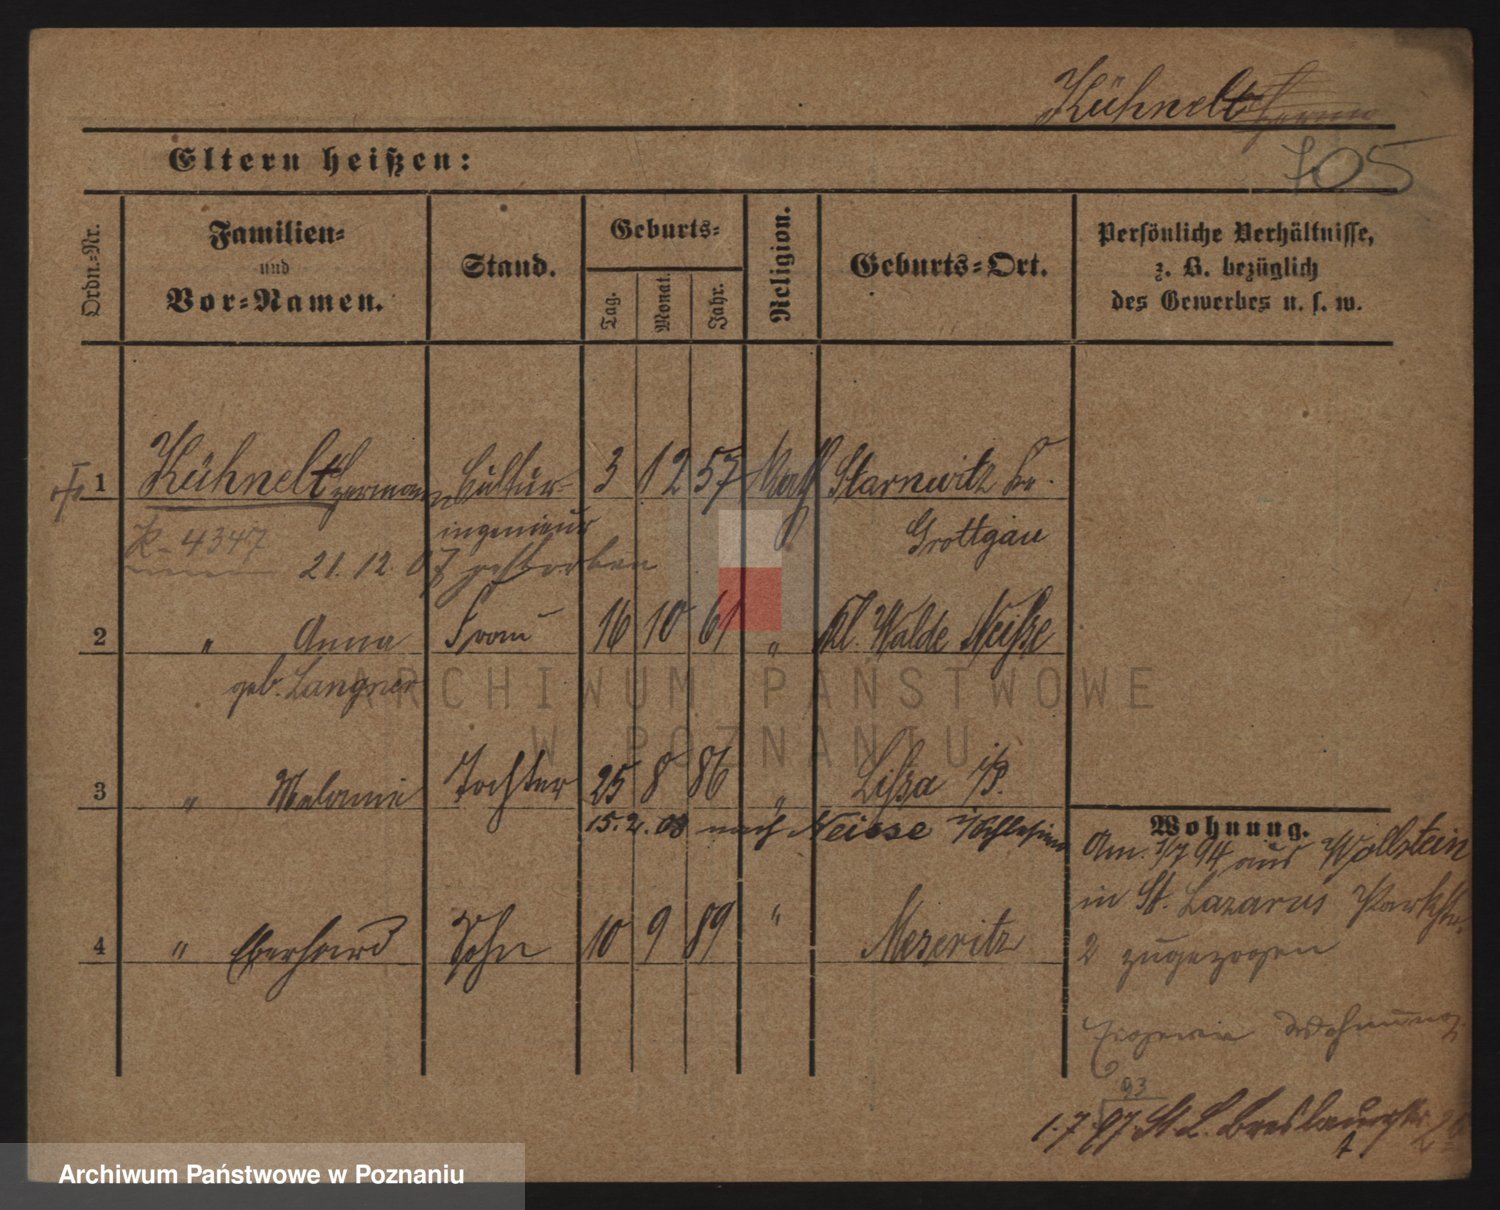 Kühnelt
705
Eltern heißen:
Ordn.-Nr.
Familien-
und
Vor-Namen.
Stand.
Geburts-
Tag.
Monat.
Jahr.
Religion.
Geburts-Ort.
Persönliche Verhältnisse,
z. B. bezüglich
des Gewerbes u. s. w.
1 Kühnelt Hermann Cultur- 3 12 57 Kath Starnwitz Kr.
ingenieur Grottgau
K. 4347
21. 12. 07 gestorben
2 " Anna Frau 16 10 61 " Kl. Walde Neiße
geb. Langner
3 " Melanie Tochter 25 8 86 " Lissa i/P.
15. 2. 08 nach Neisse i/Schlesien
4 " Eberhard Sohn 10 9 89 " Meseritz
Wohnung.
Am 1/7 94 aus Wollstein
in St. Lazarus Parkstr.
2 zugezogen
Wohnung
93
1. 7. 97 St. L. Breslauerstr.
ARCHIWUM PAŃSTWOWE
W POZNANIU
Archiwum Państwowe w Poznaniu